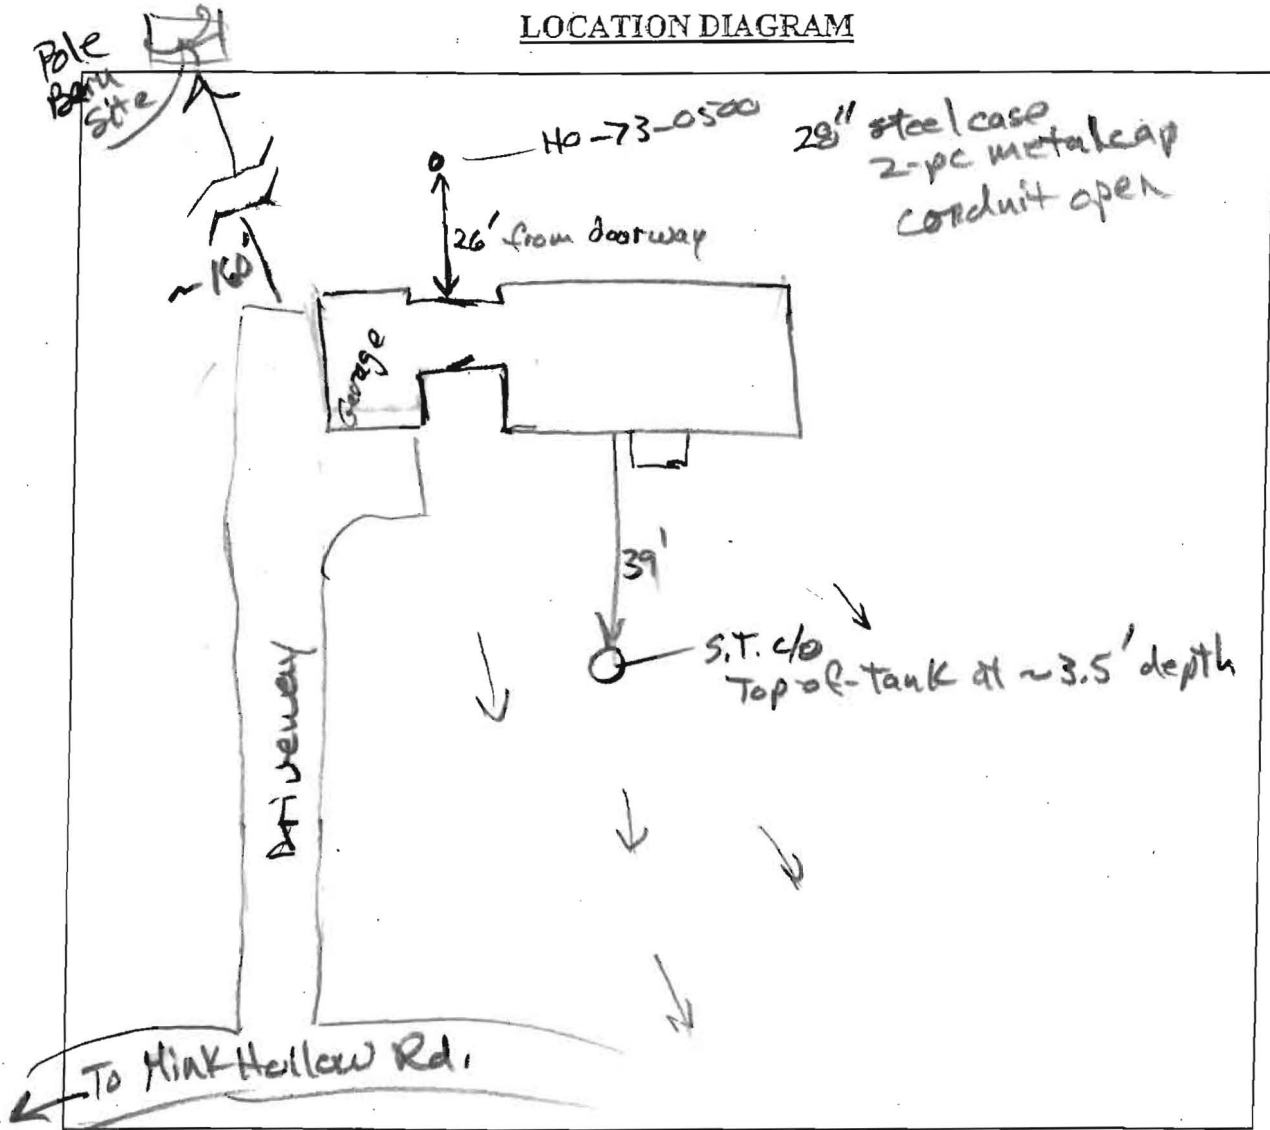 LOCATION DIAGRAM
Pole
Barn
Site
HO-73-0500
28" steel case
2-pc metal cap
conduit open
26' from doorway
~160'
Garage
39'
S.T. c/o
Top-of-tank at ~3.5' depth
Driveway
To Mink Hollow Rd.